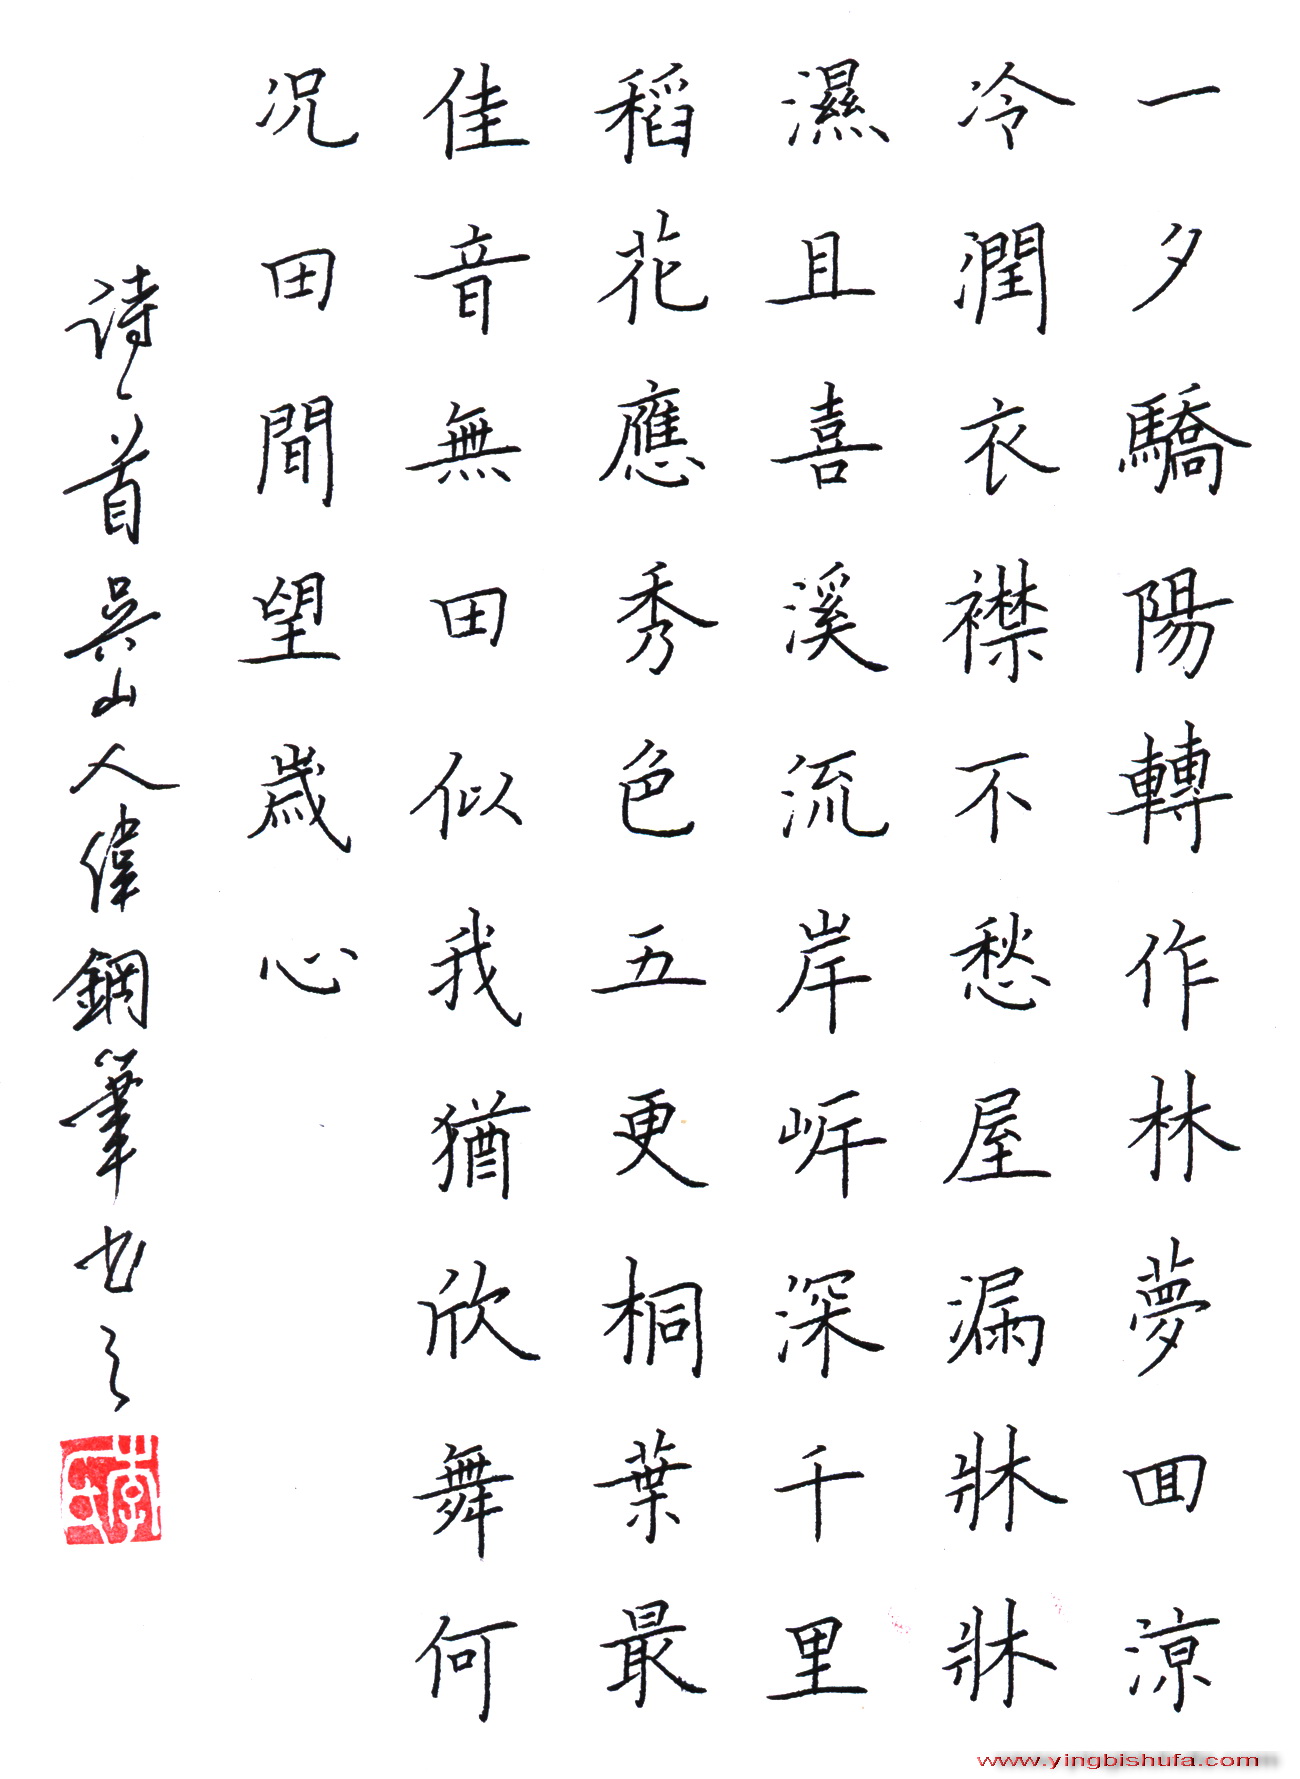 一夕驕陽轉作林夢囬涼
冷潤衣襟不愁屋漏牀牀
濕且喜溪流岸岸深千里
稻花應秀色五更桐葉最
佳音無田似我猶欣舞何
况田間望歲心
诗一首吳山人偉鋼筆书之
李氏
www.yingbishufa.com